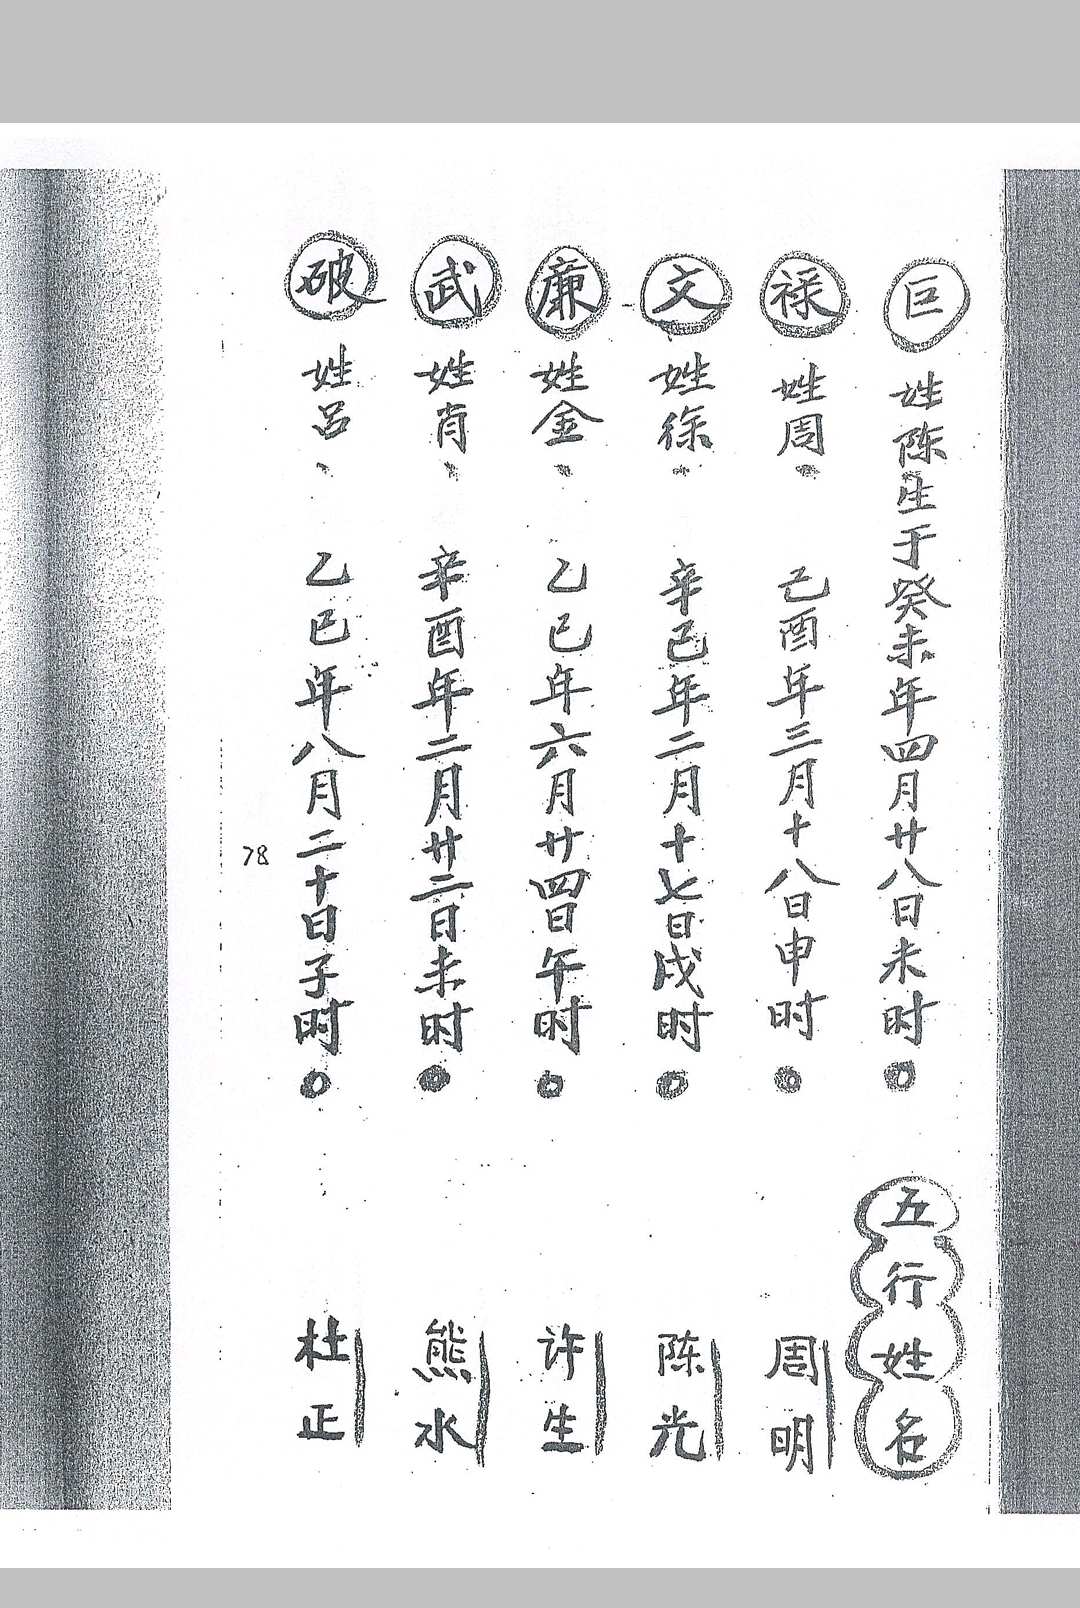 巨 姓陈生于癸未年四月廿八日未时。
禄 姓周、 己酉年三月十八日申时。
文 姓徐、 辛巳年二月十七日戌时。
廉 姓金、 乙巳年六月廿四日午时。
武 姓肖、 辛酉年二月廿二日未时。
破 姓吕、 乙巳年八月二十日子时。
五行姓名
周明
陈光
许生
熊水
杜正
78